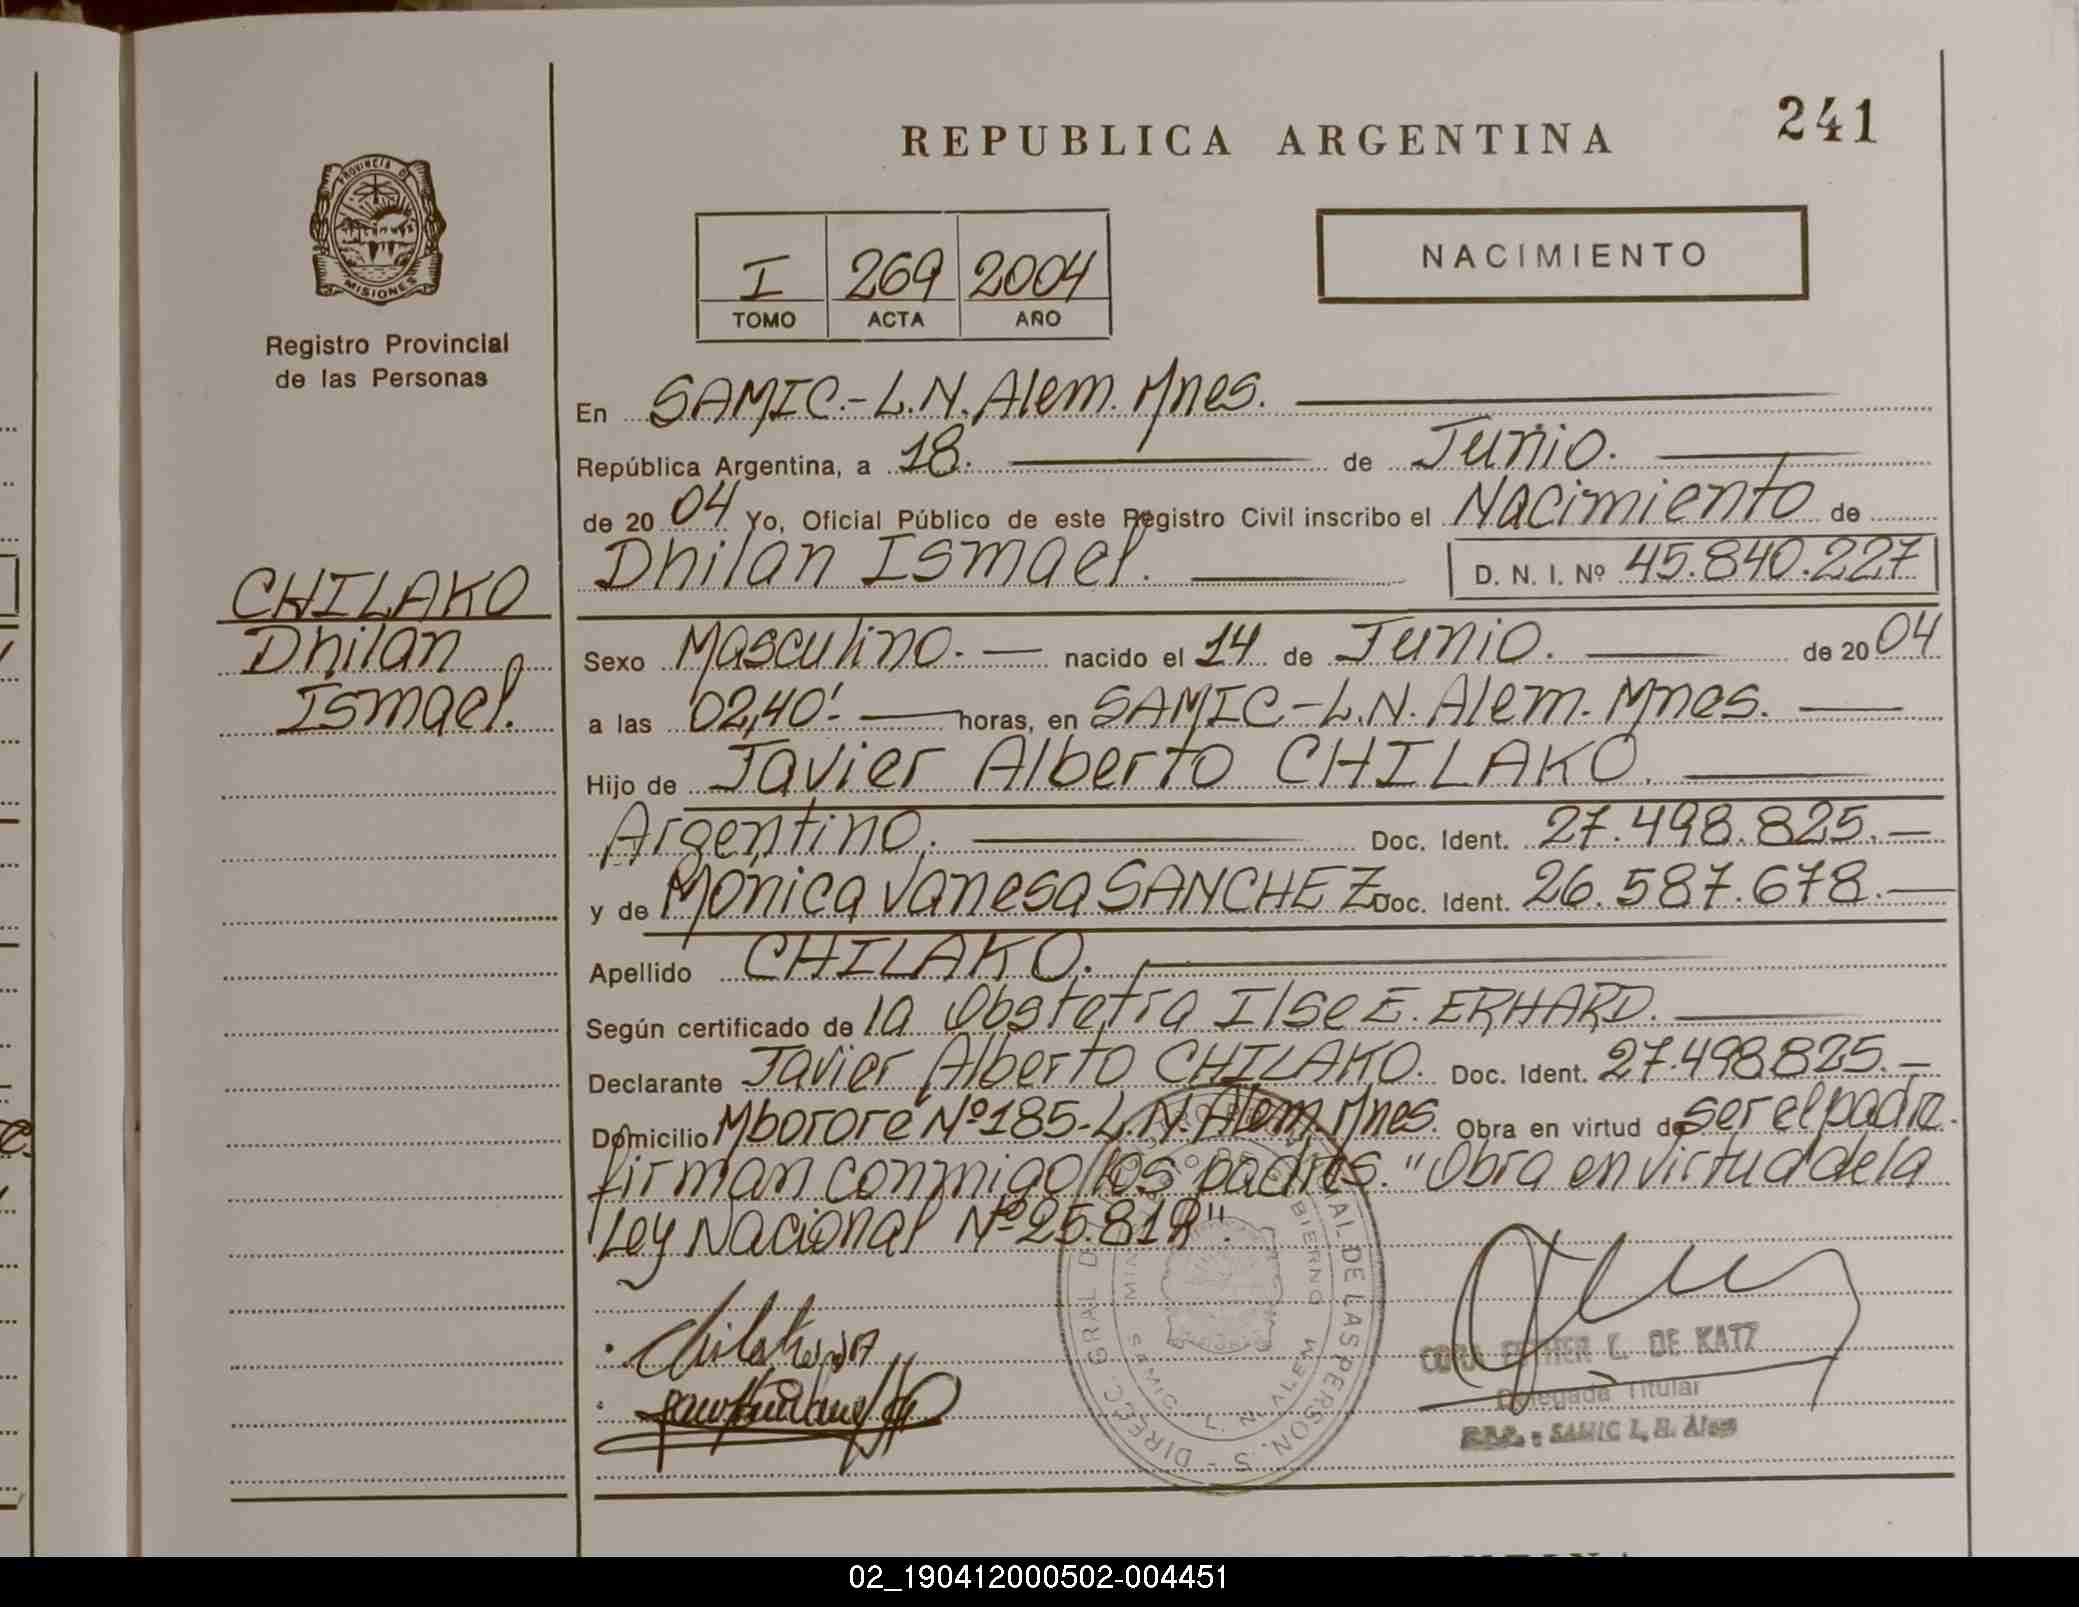 241
REPUBLICA ARGENTINA
PROVINCIA DE
MISIONES
Registro Provincial
de las Personas
I 269 2004
TOMO ACTA AÑO
NACIMIENTO
En SAMIC.-L.N. Alem. Mnes.
República Argentina, a 18. de Junio.
de 2004 Yo, Oficial Público de este Registro Civil inscribo el Nacimiento de
Dhilan Ismael. D. N. I. Nº 45.840.227
CHILAKO
Dhilan
Ismael.
Sexo Masculino. nacido el 14 de Junio. de 2004
a las 02,40'. horas, en SAMIC-L.N. Alem. Mnes.
Hijo de Javier Alberto CHILAKO.
Argentino. Doc. Ident. 27.498.825.
y de Mónica Vanesa SANCHEZ Doc. Ident. 26.587.678.
Apellido CHILAKO.
Según certificado de la Obstetra Ilse E. ERHARD.
Declarante Javier Alberto CHILAKO. Doc. Ident. 27.498825.
Domicilio Mbororé Nº 185-L.N. Alem. Mnes. Obra en virtud de ser el padre.
firman conmigo los padres. "Obra en virtud de la
Ley Nacional Nº 25.819".
DIREC. GRAL DE LAS PERSON.S
SAMIC - L. N. ALEM
ESTHER L. DE KATZ
Delegada Titular
R.P.P. - SAMIC L. N. Alem
02_190412000502-004451